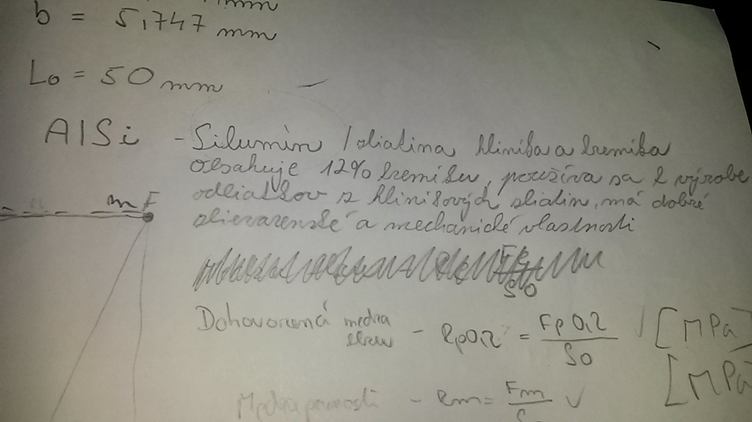 mm
b = 5,747 mm
Lo = 50 mm
AlSi - Silumin / zliatina hliníka a kremíka
obsahuje 12% kremíku, používa sa k výrobe
odliatkov z hliníkových zliatin, má dobré
zlievarenské a mechanické vlastnosti
m F
So
Dohovorená medza
sklzu - Rp0,2 = Fp0,2 / So [MPa]
Medza pevnosti - Rm = Fm / S [MPa]